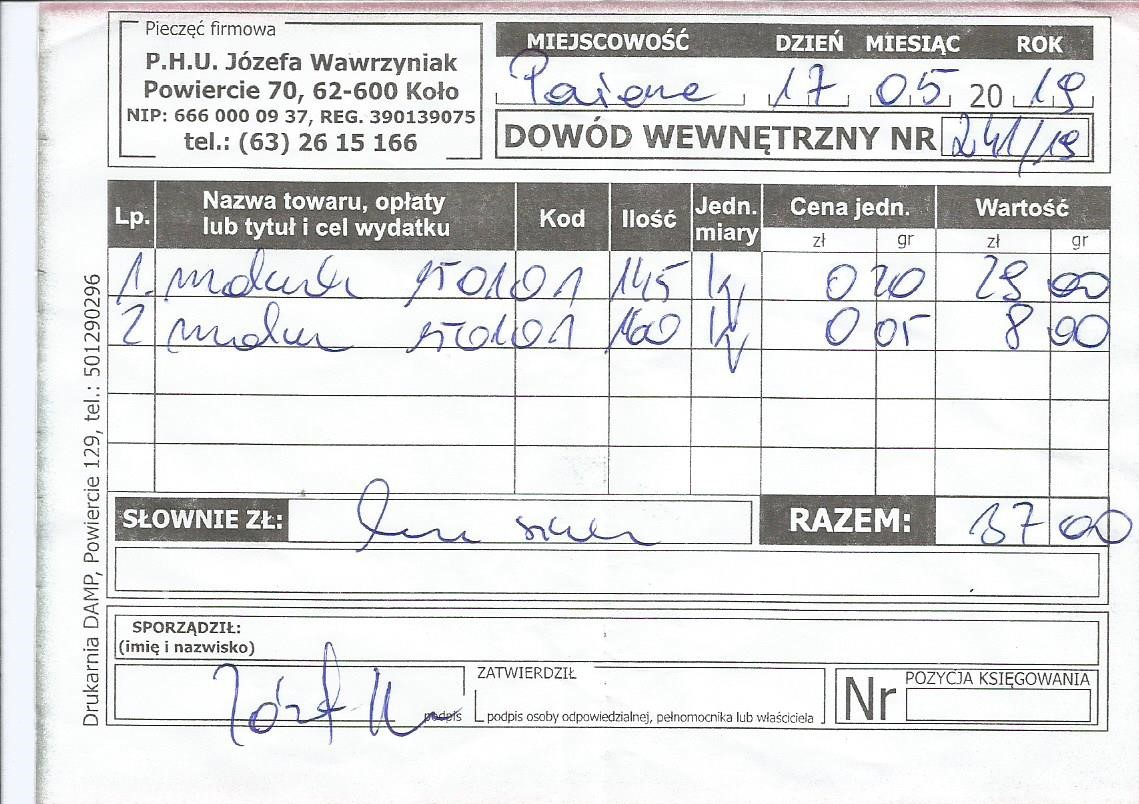 Pieczęć firmowa
P.H.U. Józefa Wawrzyniak
Powiercie 70, 62-600 Koło
NIP: 666 000 09 37, REG. 390139075
tel.: (63) 26 15 166
MIEJSCOWOŚĆ DZIEŃ MIESIĄC ROK
17 05 20 19
DOWÓD WEWNĘTRZNY NR 241/19
Lp. Nazwa towaru, opłaty lub tytuł i cel wydatku Kod Ilość Jedn. miary Cena jedn. Wartość
zł gr zł gr
1. 150101 145 kg 0 20 29 00
2 150101 160 kg 0 05 8 00
SŁOWNIE ZŁ: RAZEM: 37 00
SPORZĄDZIŁ:
(imię i nazwisko)
ZATWIERDZIŁ
Nr POZYCJA KSIĘGOWANIA
podpis
podpis osoby odpowiedzialnej, pełnomocnika lub właściciela
Drukarnia DAMP, Powiercie 129, tel.: 501290296